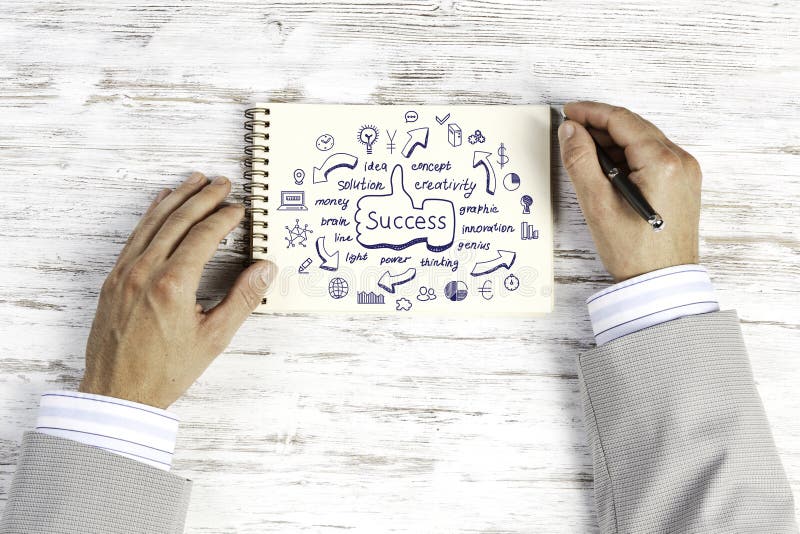 idea concept
solution creativity
money graphic
Success
brain innovation
line genius
light power thinking